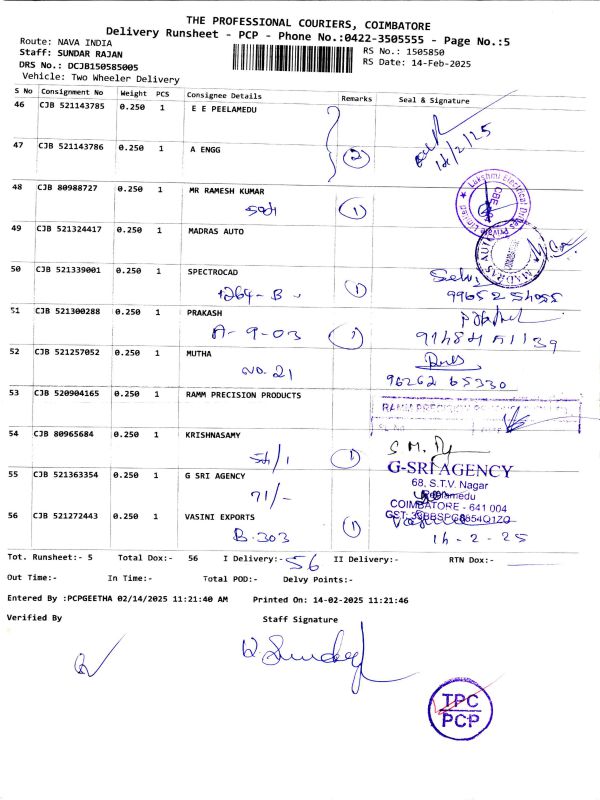 THE PROFESSIONAL COURIERS, COIMBATORE
Delivery Runsheet - PCP - Phone No.:0422-3505555 - Page No.:5
Route: NAVA INDIA
RS No.: 1505850
Staff: SUNDAR RAJAN
RS Date: 14-Feb-2025
DRS No.: DCJB150585005
Vehicle: Two Wheeler Delivery
S No Consignment No Weight PCS Consignee Details Remarks Seal & Signature
46 CJB 521143785 0.250 1 E E PEELAMEDU
14/2/25
47 CJB 521143786 0.250 1 A ENGG 2
48 CJB 80988727 0.250 1 MR RAMESH KUMAR
1
Lakshmi Electrical
49 CJB 521324417 0.250 1 MADRAS AUTO
MADRAS AUTO
50 CJB 521339001 0.250 1 SPECTROCAD
1264-B 1
51 CJB 521300288 0.250 1 PRAKASH
A-9-03 1
52 CJB 521257052 0.250 1 MUTHA
NO. 21 96262 65330
53 CJB 520904165 0.250 1 RAMM PRECISION PRODUCTS
RAMM PRECISION
54 CJB 80965684 0.250 1 KRISHNASAMY
54/1 1
55 CJB 521363354 0.250 1 G SRI AGENCY
71/-
G-SRI AGENCY
68, S.T.V. Nagar
Peelamedu
COIMBATORE - 641 004
56 CJB 521272443 0.250 1 VASINI EXPORTS
B.303 1
14-2-25
Tot. Runsheet:- 5 Total Dox:- 56 I Delivery:- 56 II Delivery:- RTN Dox:-
Out Time:- In Time:- Total POD:- Delvy Points:-
Entered By :PCPGEETHA 02/14/2025 11:21:40 AM Printed On: 14-02-2025 11:21:46
Verified By Staff Signature
TPC
PCP